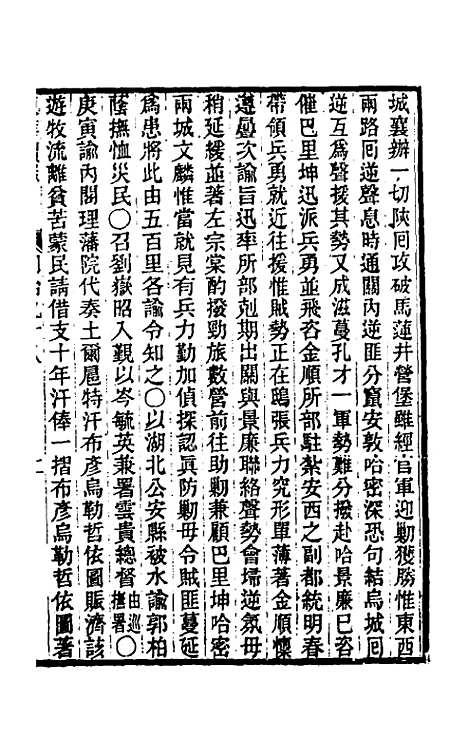 城襄辦一切陝囘攻破馬蓮井營堡雖經官軍迎勦獲勝惟東西
兩路囘逆聲息時通關內逆匪分竄安敦哈密深恐句結烏城囘
逆互爲聲援其勢又成滋蔓孔才一軍勢難分撥赴哈景廉已咨
催巴里坤迅派兵勇並飛咨金順所部駐紮安西之副都統明春
帶領兵勇就近往援惟賊勢正在鴟張兵力究形單薄著金順懍
遵疊次諭旨迅率所部剋期出關與景廉聯絡聲勢會埽逆氛毋
稍延緩並著左宗棠酌撥勁旅數營前往助勦兼顧巴里坤哈密
兩城文麟惟當就見有兵力勤加偵探認眞防勦毋令賊匪蔓延
爲患將此由五百里各諭令知之〇以湖北公安縣被水諭郭柏
蔭撫恤災民〇召劉嶽昭入覲以岑毓英兼署雲貴總督由巡撫署〇
庚寅諭內閣理藩院代奏土爾扈特汗布彥烏勒哲依圖賑濟該
遊牧流離貧苦蒙民請借支十年汗俸一摺布彥烏勒哲依圖著